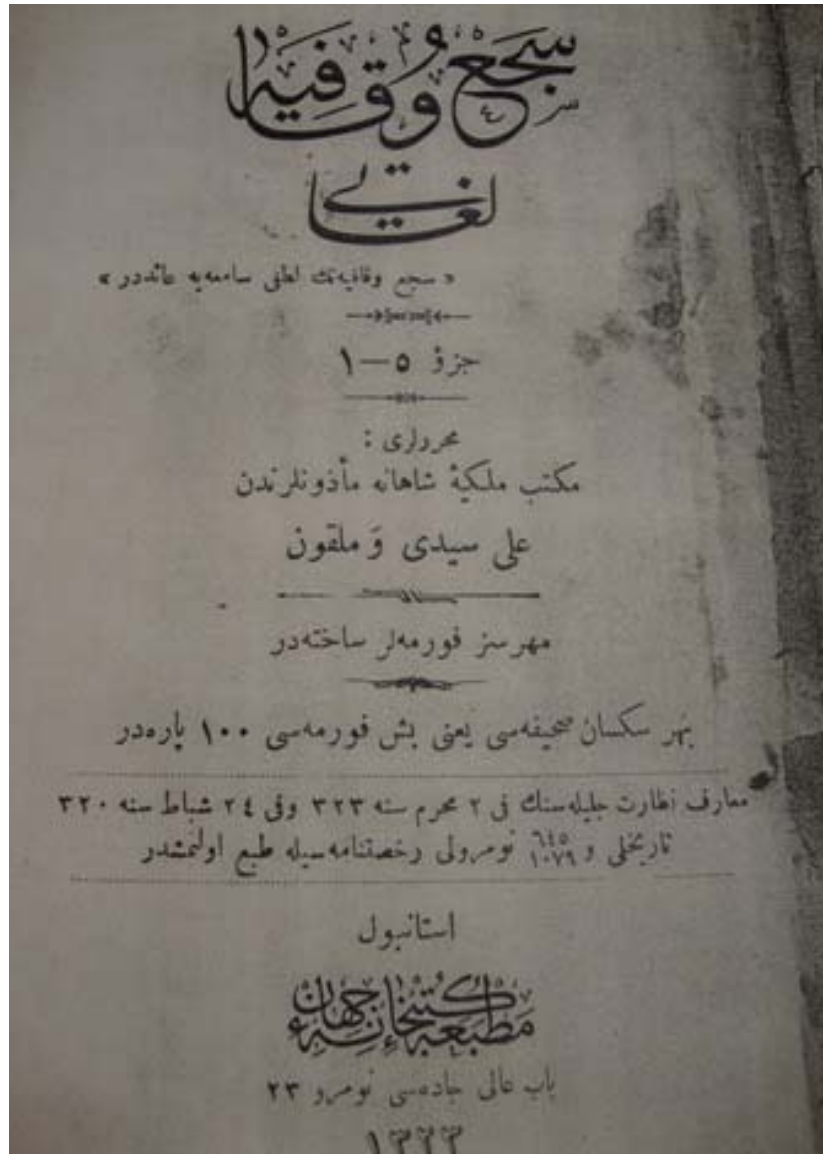 سجع وقافیه
لغاتی
« سجع وقافیه‌نك لطفی سامعه‌یه عائددر »
جزؤ ٥—١
محررلری :
مكتب ملكیۀ شاهانه مأذونلرندن
علی سیدی وَ ملقون
مهرسز فورمه‌لر ساخته‌در
بهر سكسان صحیفه‌سی یعنی بش فورمه‌سی ١٠٠ پاره‌در
معارف نظارت جلیله‌سنك فی ٢ محرم سنه ٣٢٣ وفی ٢٤ شباط سنه ٣٢٠
تاریخلی و ٦٤٥/١٠٧٩ نومرولی رخصتنامه‌سیله طبع اولنمشدر
استانبول
مطبعه كتبخانهٔ جهان
باب عالی جاده‌سی نومرو ٢٣
١٣٢٣